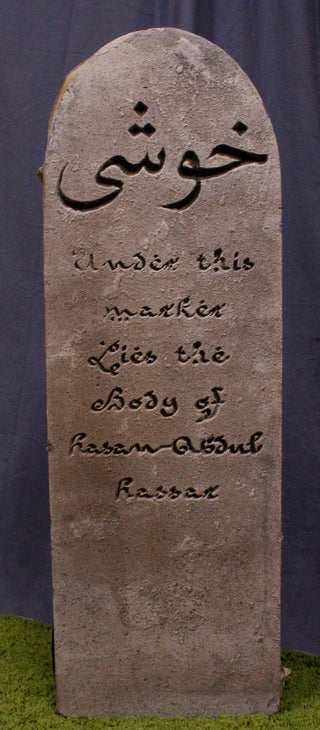 خوشی
Under this
marker
Lies the
Body of
hasan-Abdul
hassar